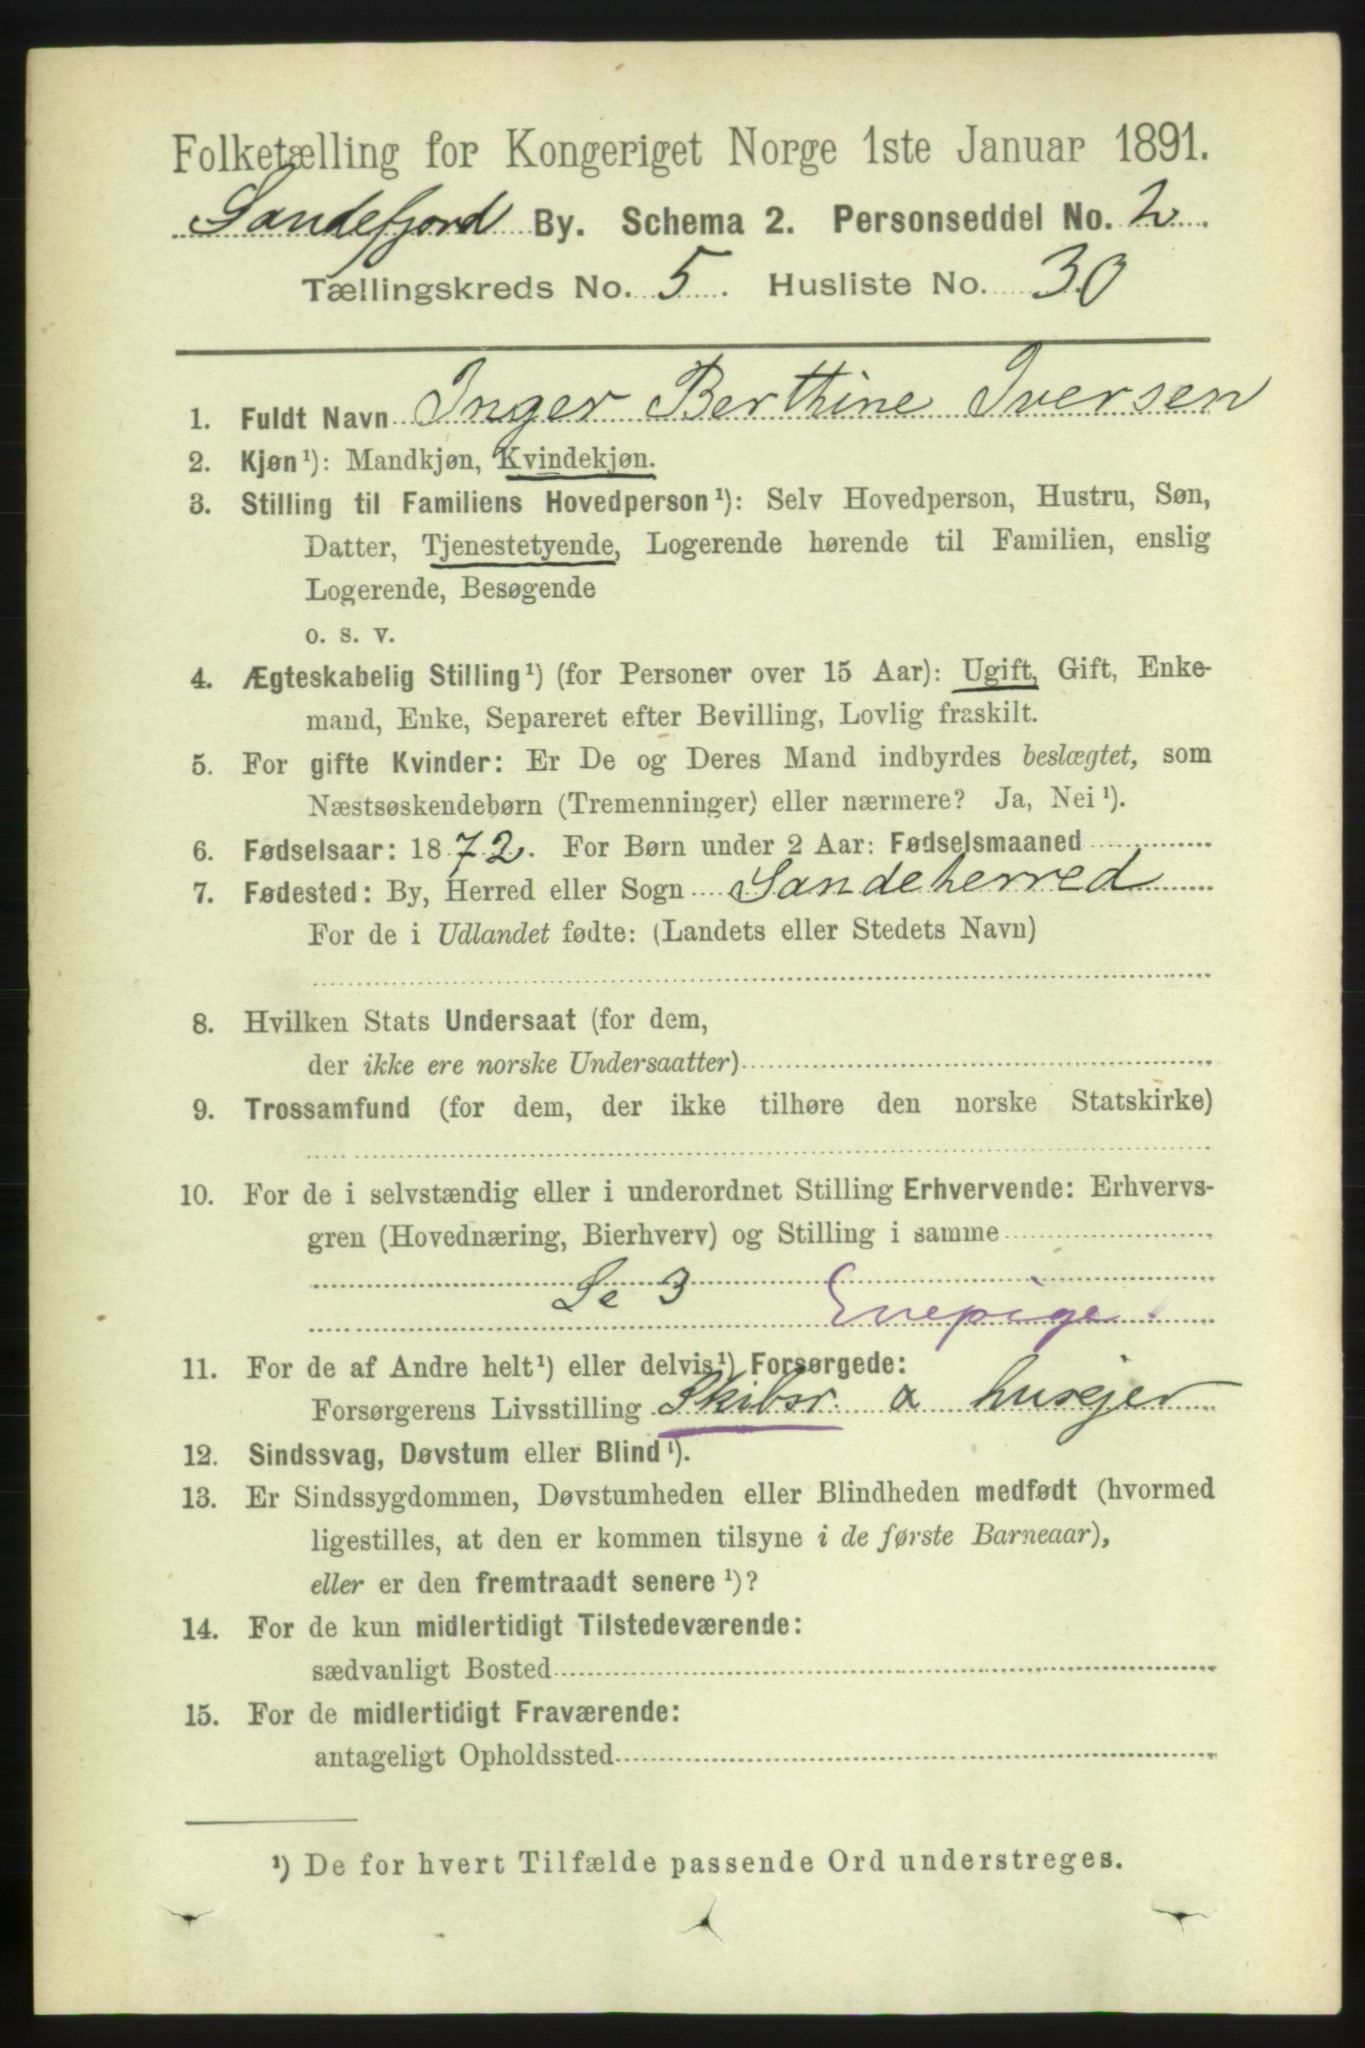 Folketælling for Kongeriget Norge 1ste Januar 1891.
Sandefjord By. Schema 2. Personseddel No. 2.
Tællingskreds No. 5. Husliste No. 30
1. Fuldt Navn Inger Berthine Iversen
2. Kjøn¹): Mandkjøn, Kvindekjøn.
3. Stilling til Familiens Hovedperson¹): Selv Hovedperson, Hustru, Søn,
Datter, Tjenestetyende, Logerende hørende til Familien, enslig
Logerende, Besøgende
o. s. v.
4. Ægteskabelig Stilling¹) (for Personer over 15 Aar): Ugift, Gift, Enke-
mand, Enke, Separeret efter Bevilling, Lovlig fraskilt.
5. For gifte Kvinder: Er De og Deres Mand indbyrdes beslægtet, som
Næstsøskendebørn (Tremenninger) eller nærmere? Ja, Nei¹).
6. Fødselsaar: 1872. For Børn under 2 Aar: Fødselsmaaned
7. Fødested: By, Herred eller Sogn Sandeherred
For de i Udlandet fødte: (Landets eller Stedets Navn)
8. Hvilken Stats Undersaat (for dem,
der ikke ere norske Undersaatter)
9. Trossamfund (for dem, der ikke tilhøre den norske Statskirke)
10. For de i selvstændig eller i underordnet Stilling Erhvervende: Erhvervs-
gren (Hovednæring, Bierhverv) og Stilling i samme
Se 3 Enepige
11. For de af Andre helt¹) eller delvis¹) Forsørgede:
Forsørgerens Livsstilling Skibsr. & husejer
12. Sindssvag, Døvstum eller Blind¹).
13. Er Sindssygdommen, Døvstumheden eller Blindheden medfødt (hvormed
ligestilles, at den er kommen tilsyne i de første Barneaar),
eller er den fremtraadt senere¹)?
14. For de kun midlertidigt Tilstedeværende:
sædvanligt Bosted
15. For de midlertidigt Fraværende:
antageligt Opholdssted
¹) De for hvert Tilfælde passende Ord understreges.